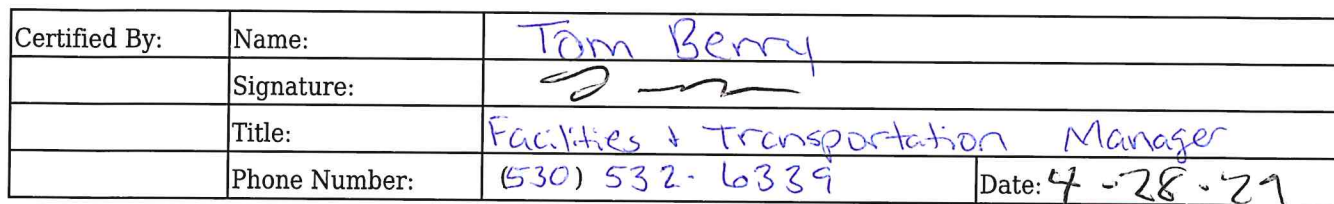 Certified By: Name: Tom Berry
Signature:
Title: Facilities & Transportation Manager
Phone Number: (530) 532-6339 Date: 4-28-21